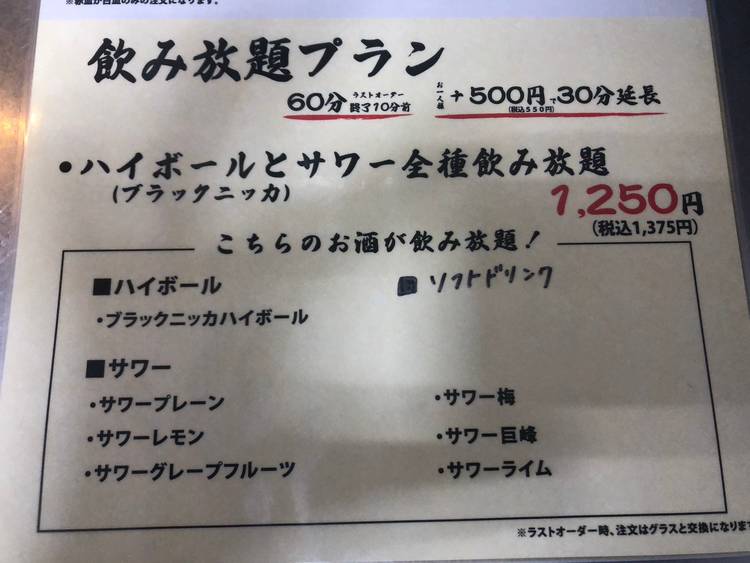 ※赤皿か白皿のみの注文になります。
飲み放題プラン
60分 ラストオーダー 終了10分前
お一人様 +500円で30分延長
(税込550円)
・ハイボールとサワー全種飲み放題
(ブラックニッカ)
1,250円
(税込1,375円)
こちらのお酒が飲み放題!
■ハイボール
・ブラックニッカハイボール
ソフトドリンク
■サワー
・サワープレーン
・サワーレモン
・サワーグレープフルーツ
・サワー梅
・サワー巨峰
・サワーライム
※ラストオーダー時、注文はグラスと交換になります